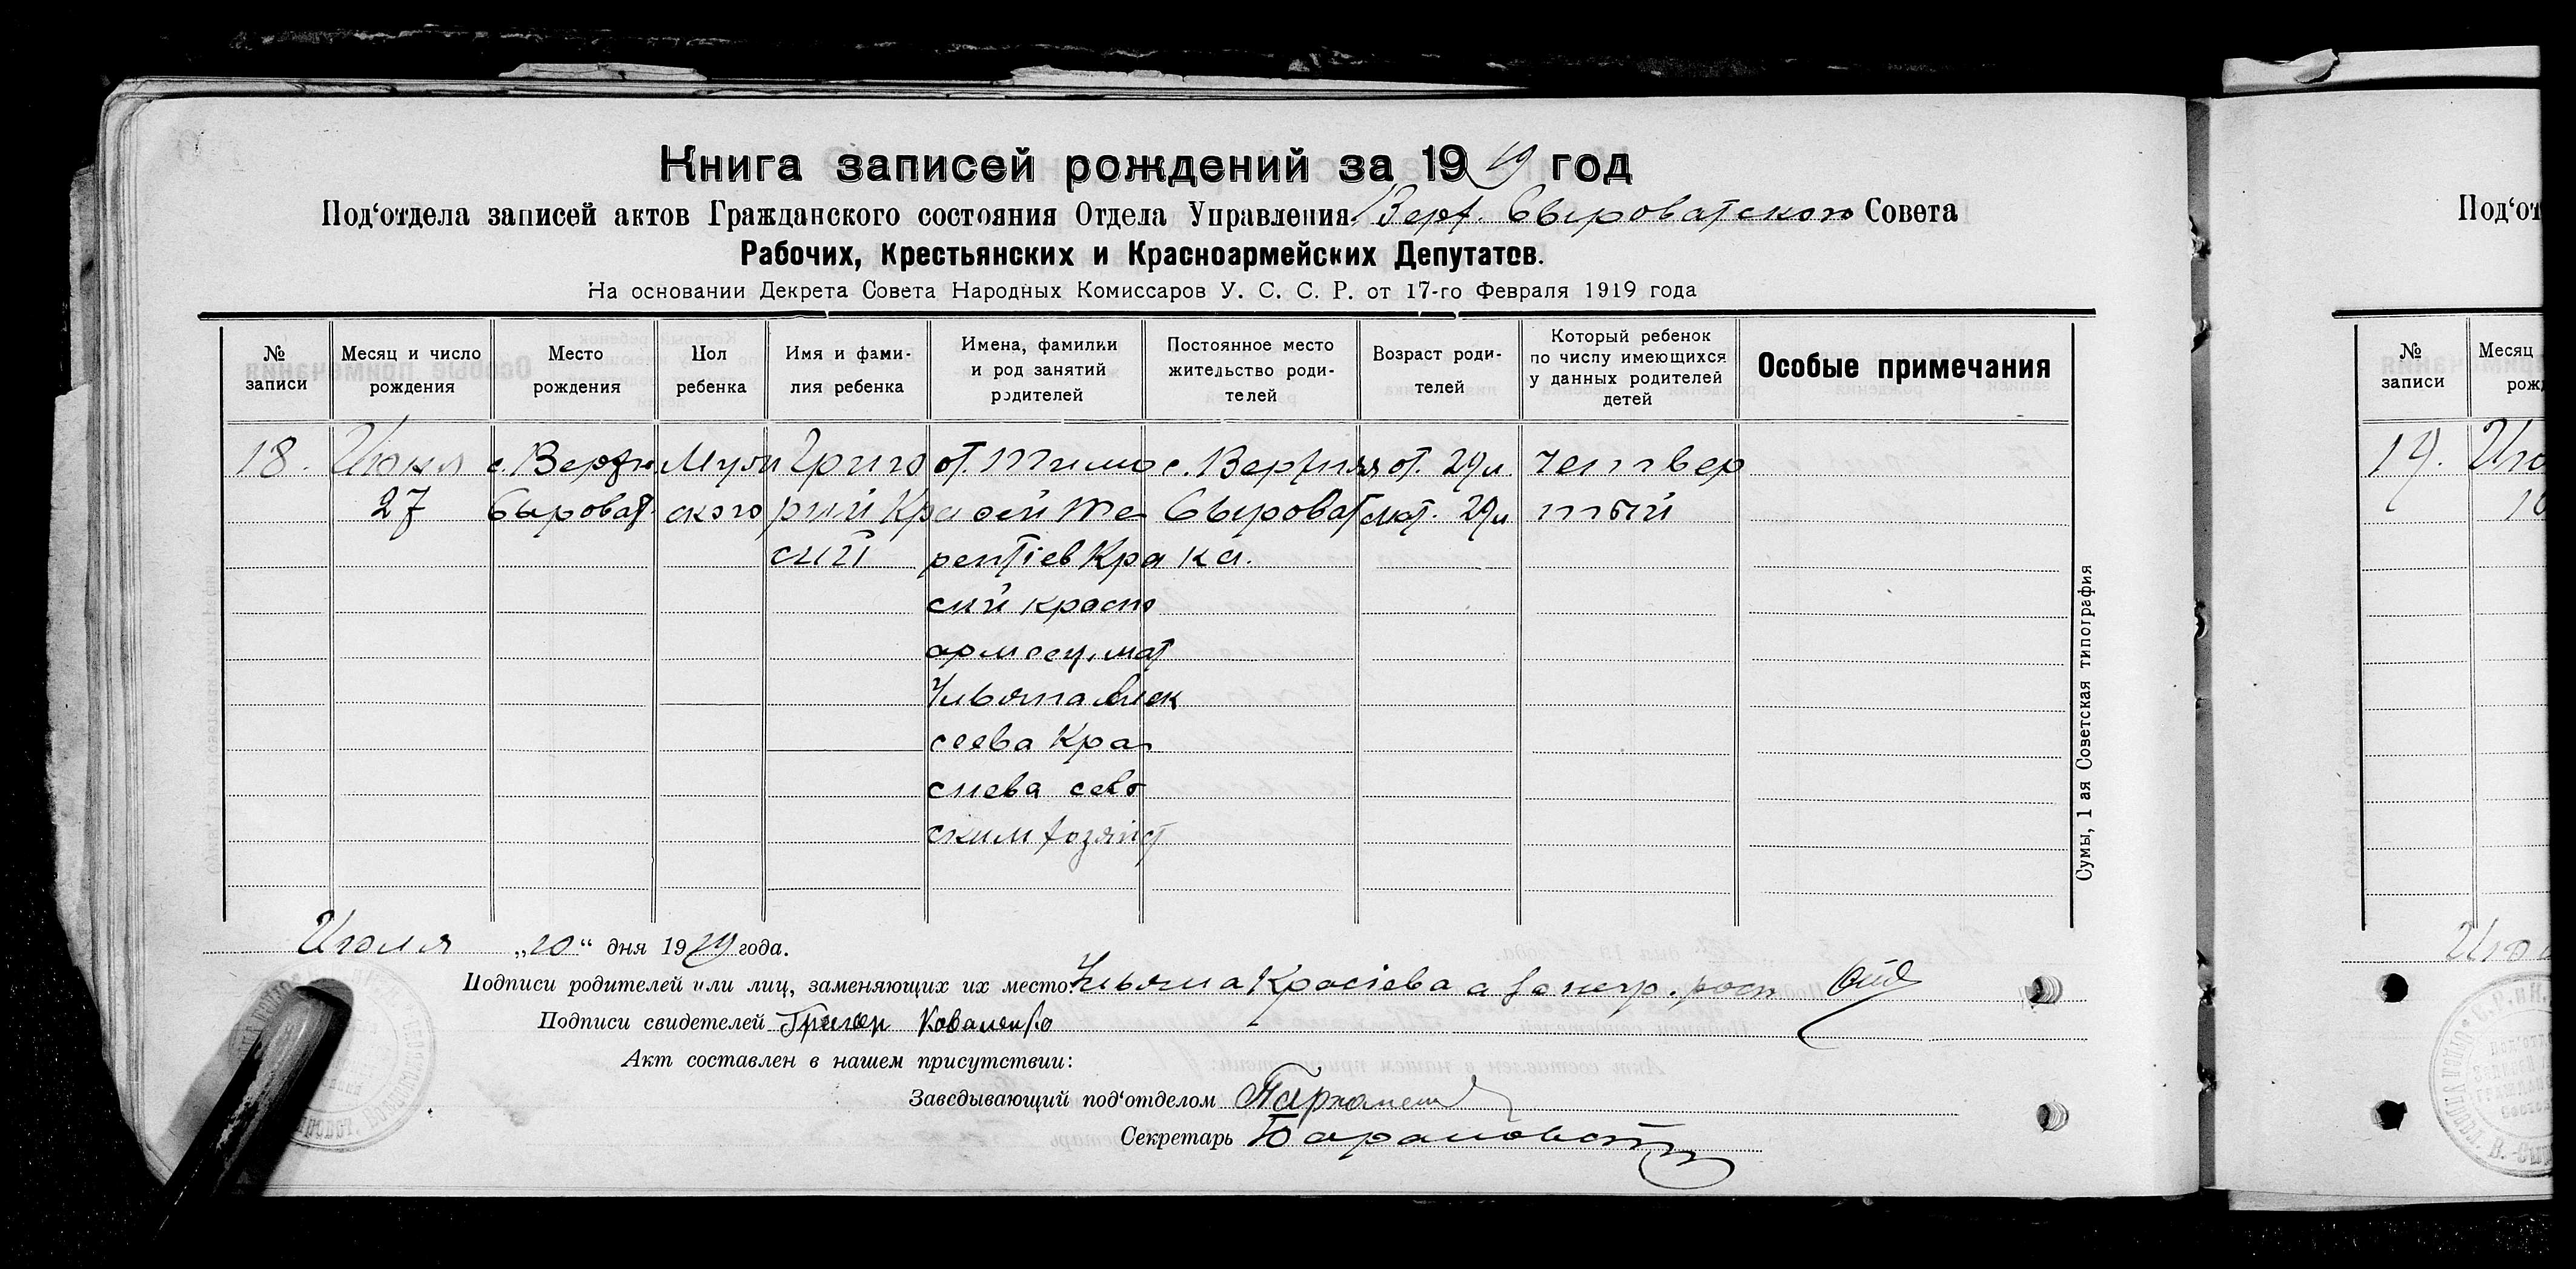 Книга записей рождений за 1919 год
Под‘отдела записей актов Гражданского состояния Отдела Управления Верх. Сыроватского Совета
Рабочих, Крестьянских и Красноармейских Депутатов.
На основании Декрета Совета Народных Комиссаров У. С. С. Р. от 17-го Февраля 1919 года
№ записи
Месяц и число рождения
Место рождения
Пол ребенка
Имя и фамилия ребенка
Имена, фамилии и род занятий родителей
Постоянное место жительство родителей
Возраст родителей
Который ребенок по числу имеющихся у данных родителей детей
Особые примечания
18.
Июня
27
с. Верхн.
Сыроват.
Муж
ского
Григо
рий Кра
сий
от. Тимо
фей Те
рентіев Кра
сий красно
армеец, мат
Ульяна Алек
сеева Кра
сиева сель
ским хозяйст
с. Верхняя
Сыроват
ка.
от. 29 л
мат. 29 л
четвер
тый
Июля „10“ дня 1919 года.
Подписи родителей или лиц, заменяющих их место: Ульяна Красіева а за негр. росп
Подписи свидетелей Григор Коваленко
Акт составлен в нашем присутствии:
Заведывающий под‘отделом Пархоменко
Секретарь Барановский
Сумы, 1 ая Советская типография
Под‘от
№ записи
Месяц
рожд
19.
Ию
10
Ию